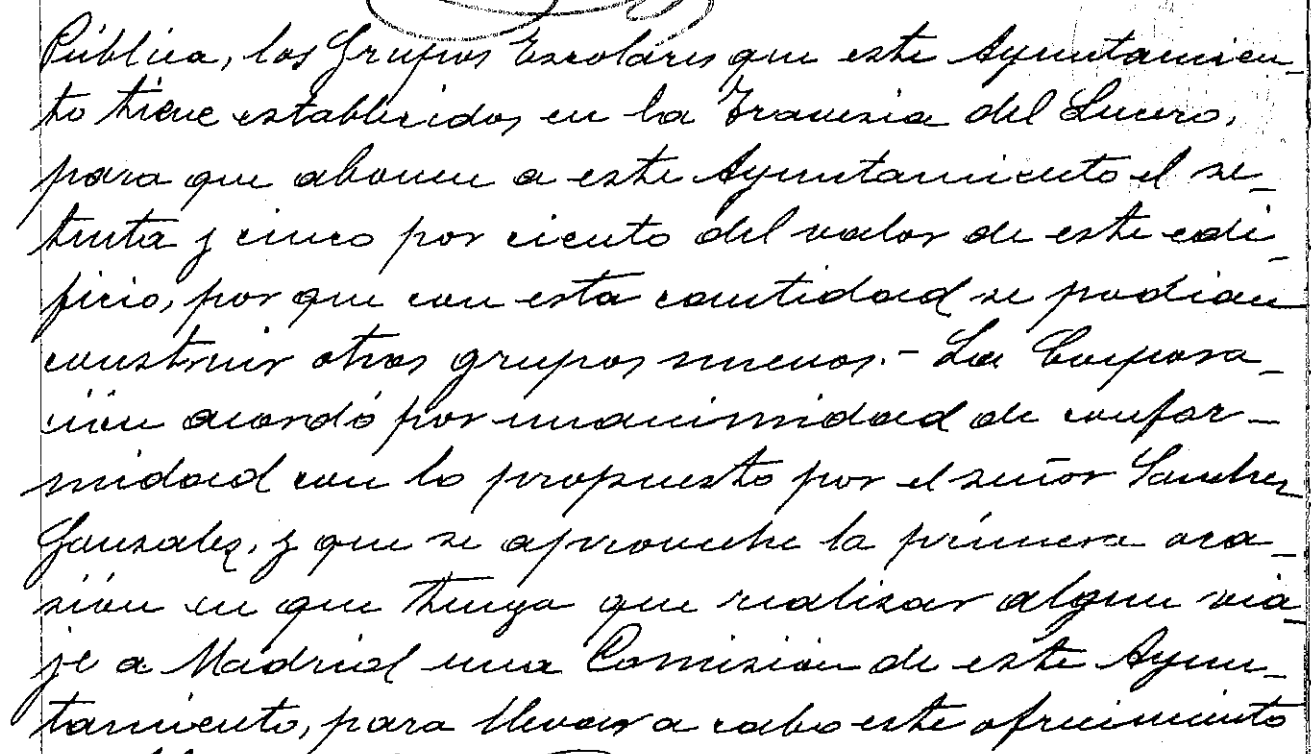 Pública, los Grupos Escolares que este Ayuntamien-
to tiene establecidos en la Travesia del Lucero,
para que abonen a este Ayuntamiento el se-
tenta y cinco por ciento del valor de este edi-
ficio, por que con esta cantidad se podian
construir otros grupos nuevos.- La Corpora-
ción acordó por unanimidad de confor-
midad con lo propuesto por el señor Sanchez
Gonzalez, y que se aproveche la primera oca-
sión en que tenga que realizar algun via-
je a Madrid una Comisión de este Ayun-
tamiento, para llevar a cabo este ofrecimiento